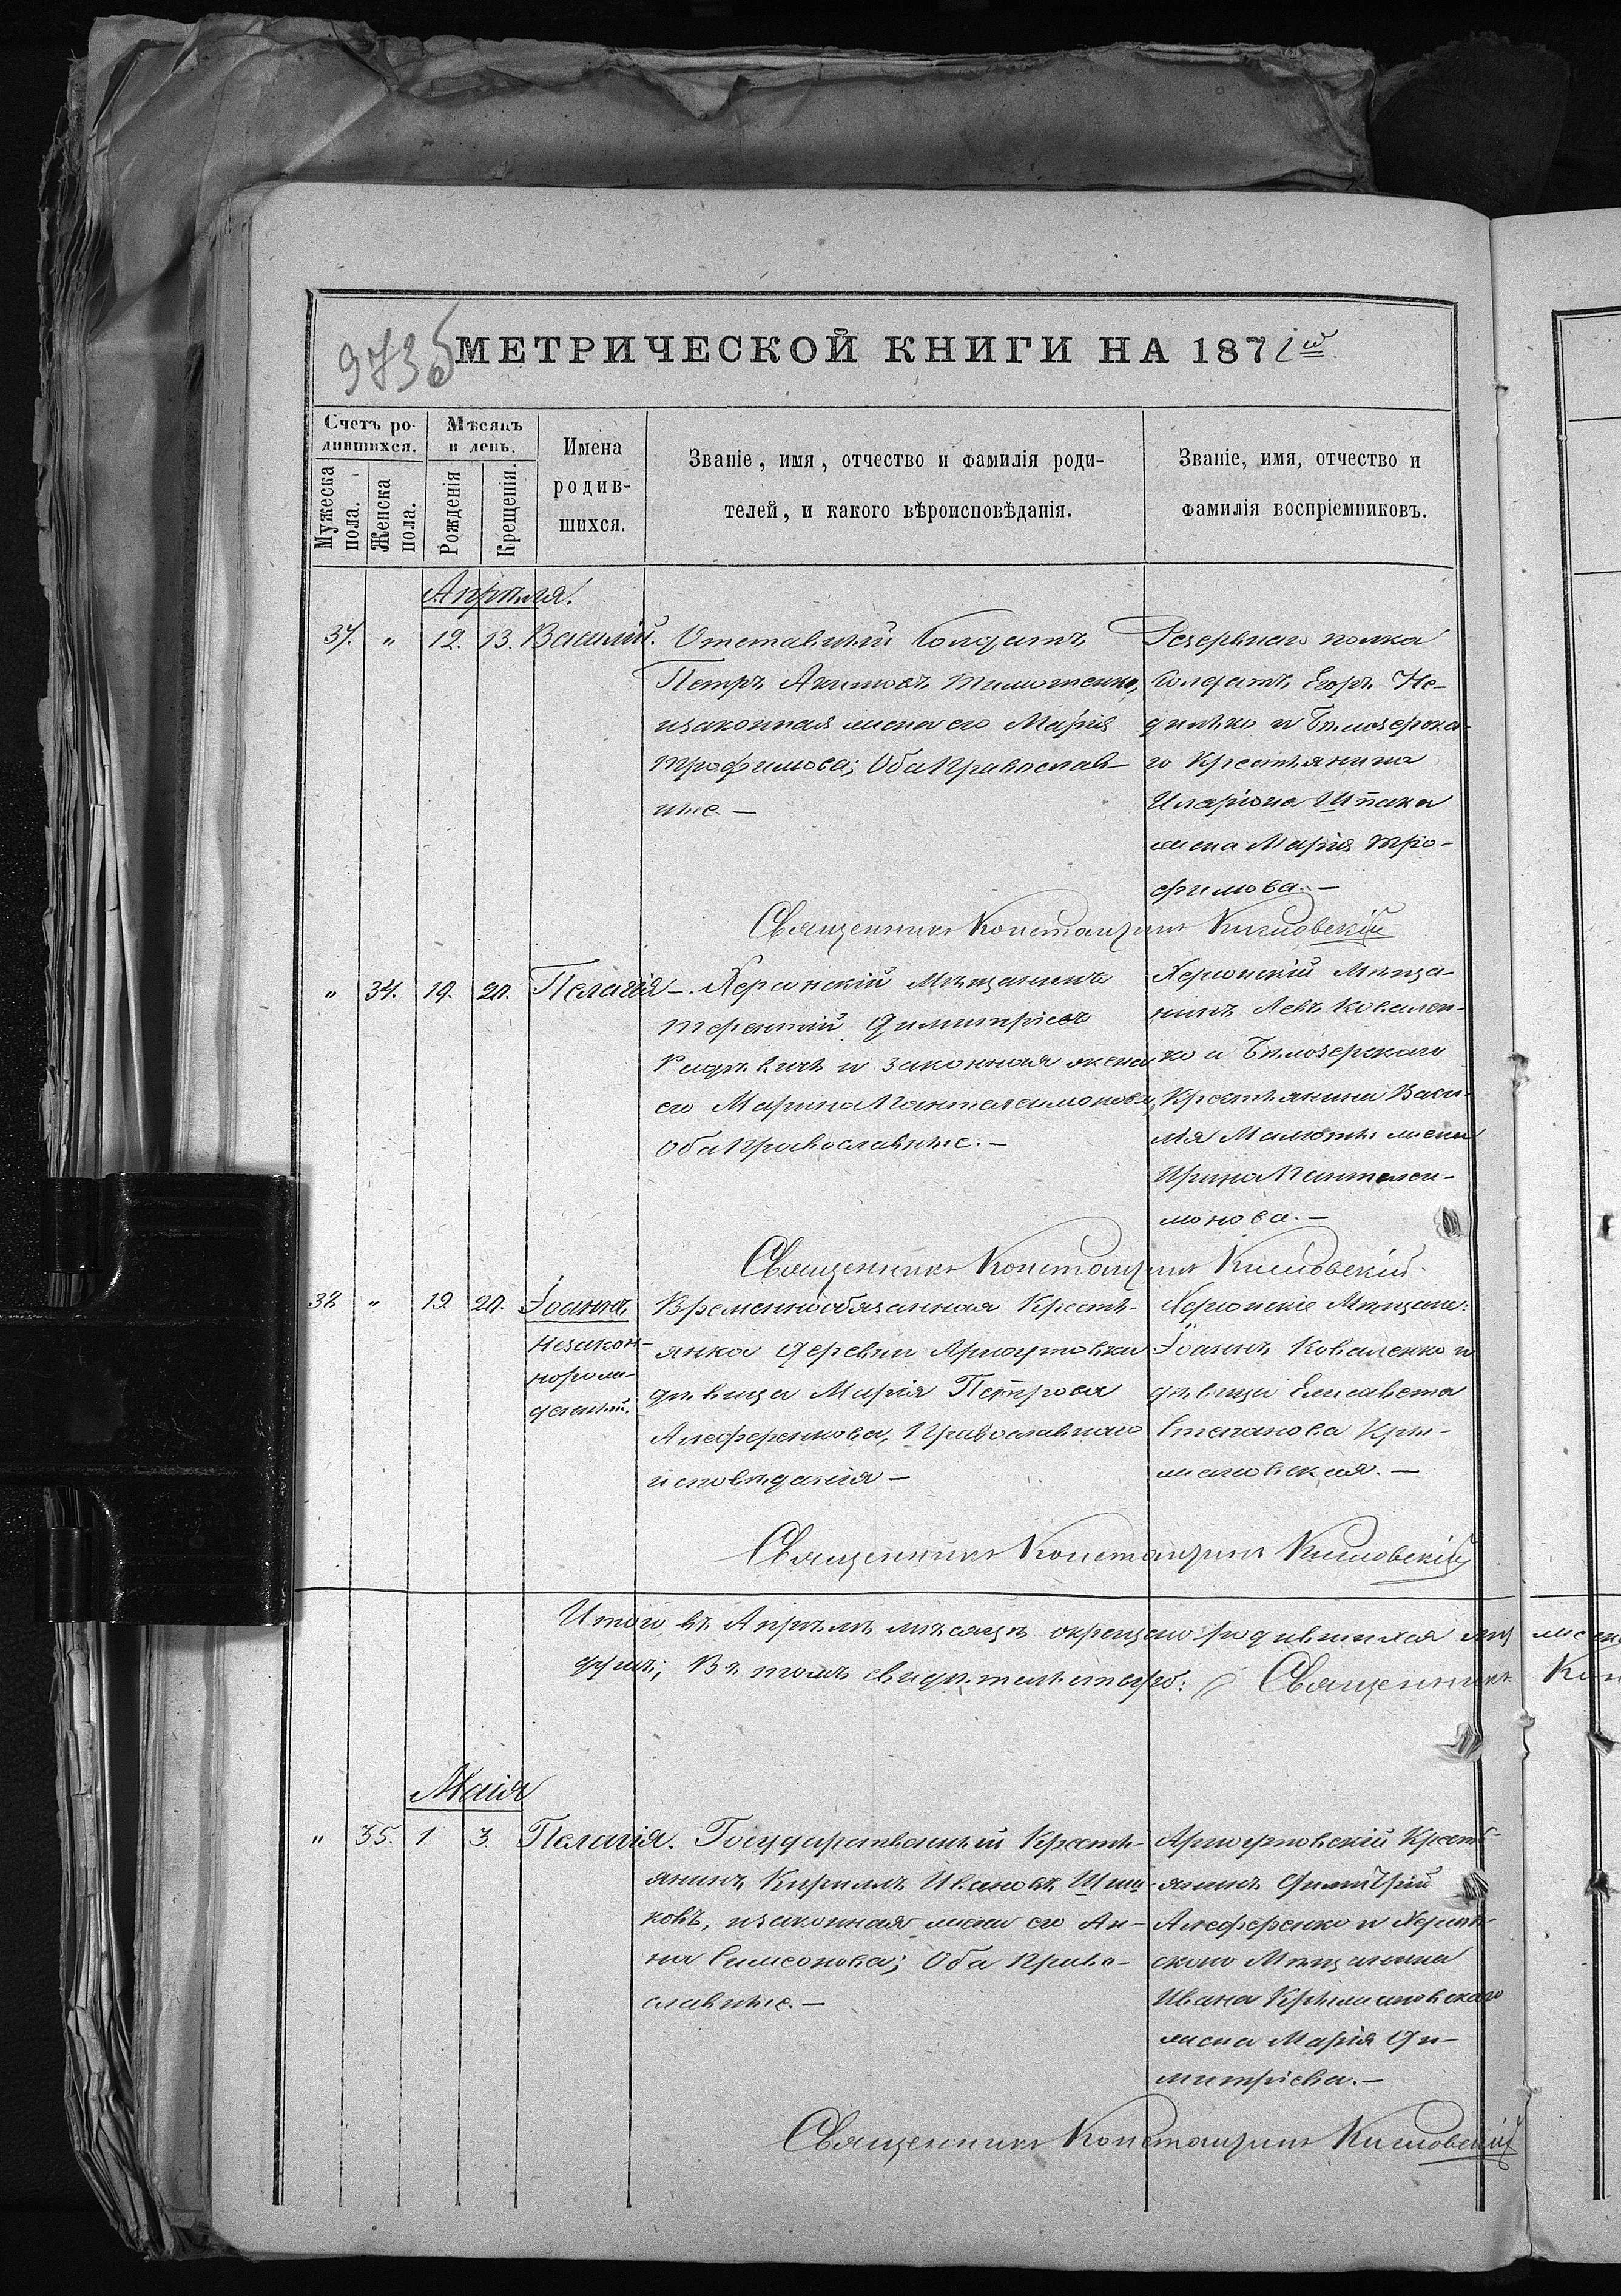 973 об
МЕТРИЧЕСКОЙ КНИГИ НА 1871й
Счетъ ро-
дившихся.
Мужеска пола.
Женска пола.
Мѣсяцъ
и день.
Рожденія
Крещенія.
Имена
родив-
шихся.
Званіе, имя, отчество и фамилія роди-
телей, и какого вѣроисповѣданія.
Званіе, имя, отчество и
фамилія воспріемниковъ.
Апрѣля.
37. " 12. 13. Василій.
Отставный Солдатъ
Петръ Акимовъ Тимошенко,
изаконная жена его Марія
Трофимова; Оба Православ-
ные. —
Резервнаго полка
Солдатъ Егоръ Не-
дилько и Бѣлозерска-
го Крестьянина
Иларіона Шпака
жена Марія Тро-
фимова. —
Священникъ Константинъ
" 34. 19. 20. Пелагія —.
Херсонскій Мѣщанинъ
Терентій Димитріевъ
и законная жена
его Марина Пантелеимонова,
Оба Православные. —
Херсонскій Мѣща-
нинъ Левъ Ковален-
ко и Бѣлозерскаго
Крестьянина Васи-
лія жена
Ирина Пантелеи-
монова. —
Священникъ Константинъ
38 " 19 20. Іоаннъ
незакон-
норож-
денный.
Временнообязанная Кресть-
янка деревни Арнаутовки
дѣвица Марія Петрова
Алефиренкова, Православнаго
исповѣданія —
Херсонскіе Мѣщане:
Іоаннъ Коваленко и
дѣвица Елисавета
Степанова Кры-
жановская. —
Священникъ Константинъ
Итого въ Апрѣлѣ мѣсяцѣ окрещено родившихся
Въ томъ свидѣтельствую: Священникъ
Маія
" 35. 1 3. Пелагія.
Государственный Кресть-
янинъ Кириллъ Ивановъ Шиш-
ковъ, изаконная жена его Ан-
на Симеонова; Оба Право-
славные. —
Арнаутовскій Кресть-
янинъ Димитрій
Алефиренко и Херсон-
скаго Мѣщанина
Ивана Крыжановскаго
жена Марія Ди-
митріева. —
Священникъ Константинъ